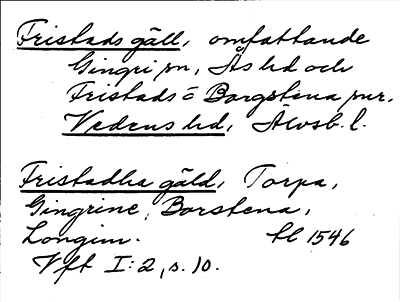 Fristads gäll, omfattande
Gingri sn, Ås hd och
Fristads o Borgstena snr,
Vedens hd, Älvsb. l.
Fristadha gäld, Torpa,
Gingrine, Borstena,
Longim. tl 1546
Vft I:2, s. 10.